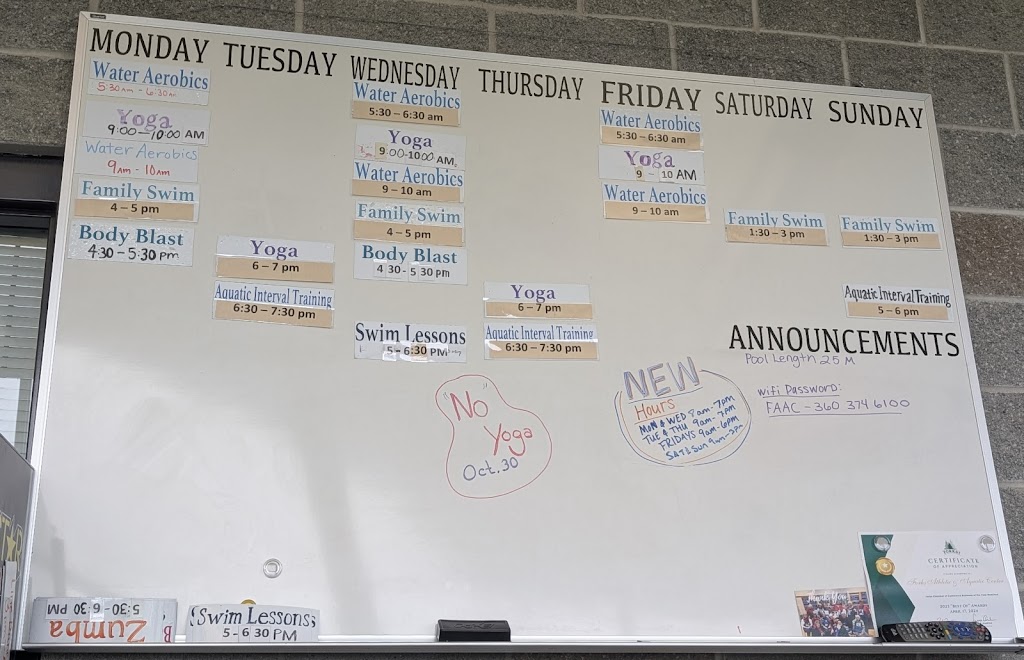 MONDAY TUESDAY WEDNESDAY THURSDAY FRIDAY SATURDAY SUNDAY
Water Aerobics
5:30am - 6:30am
Yoga
9:00-10:00 AM
Water Aerobics
9am - 10am
Family Swim
4 – 5 pm
Body Blast
4:30 - 5:30 pm
Yoga
6 – 7 pm
Aquatic Interval Training
6:30 – 7:30 pm
Water Aerobics
5:30 – 6:30 am
Yoga
9:00-10:00 AM
Water Aerobics
9 – 10 am
Family Swim
4 – 5 pm
Body Blast
4 30 - 5 30 pm
Swim Lessons
5 - 6:30 PM
Yoga
6 – 7 pm
Aquatic Interval Training
6:30 – 7:30 pm
Water Aerobics
5:30 – 6:30 am
Yoga
9 – 10 AM
Water Aerobics
9 – 10 am
Family Swim
1:30 – 3 pm
Family Swim
1:30 – 3 pm
Aquatic Interval Training
5 – 6 pm
ANNOUNCEMENTS
Pool Length 25 M
wifi Password:
FAAC - 360 374 6100
"No
Yoga"
Oct. 30
NEW
Hours
MON & WED 8am-7pm
TUE & THU 9am-7pm
FRIDAYS 9am-6pm
SAT & Sun 9am-3pm
Zumba
5:30 - 6:30 PM
Swim Lessons
5 - 6 30 PM
CERTIFICATE
OF APPRECIATION
Forks Athletic & Aquatic Center